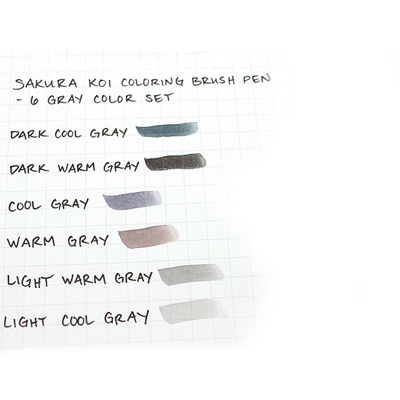 SAKURA KOI COLORING BRUSH PEN
- 6 GRAY COLOR SET
DARK COOL GRAY
DARK WARM GRAY
COOL GRAY
WARM GRAY
LIGHT WARM GRAY
LIGHT COOL GRAY